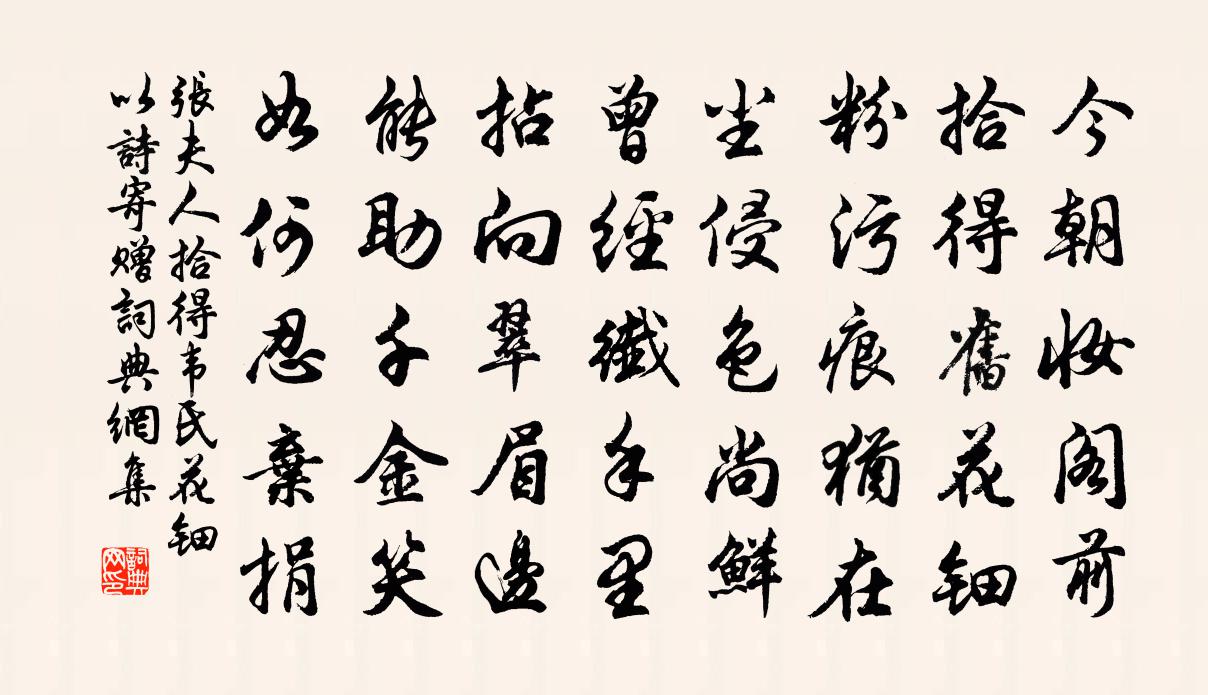 今朝妆阁前
拾得舊花钿
粉污痕猶在
尘侵色尚鮮
曾經纖手里
拈向翠眉邊
能助千金笑
如何忍棄捐
張夫人拾得韦氏花钿
以詩寄赠詞典網集
詞典
网印